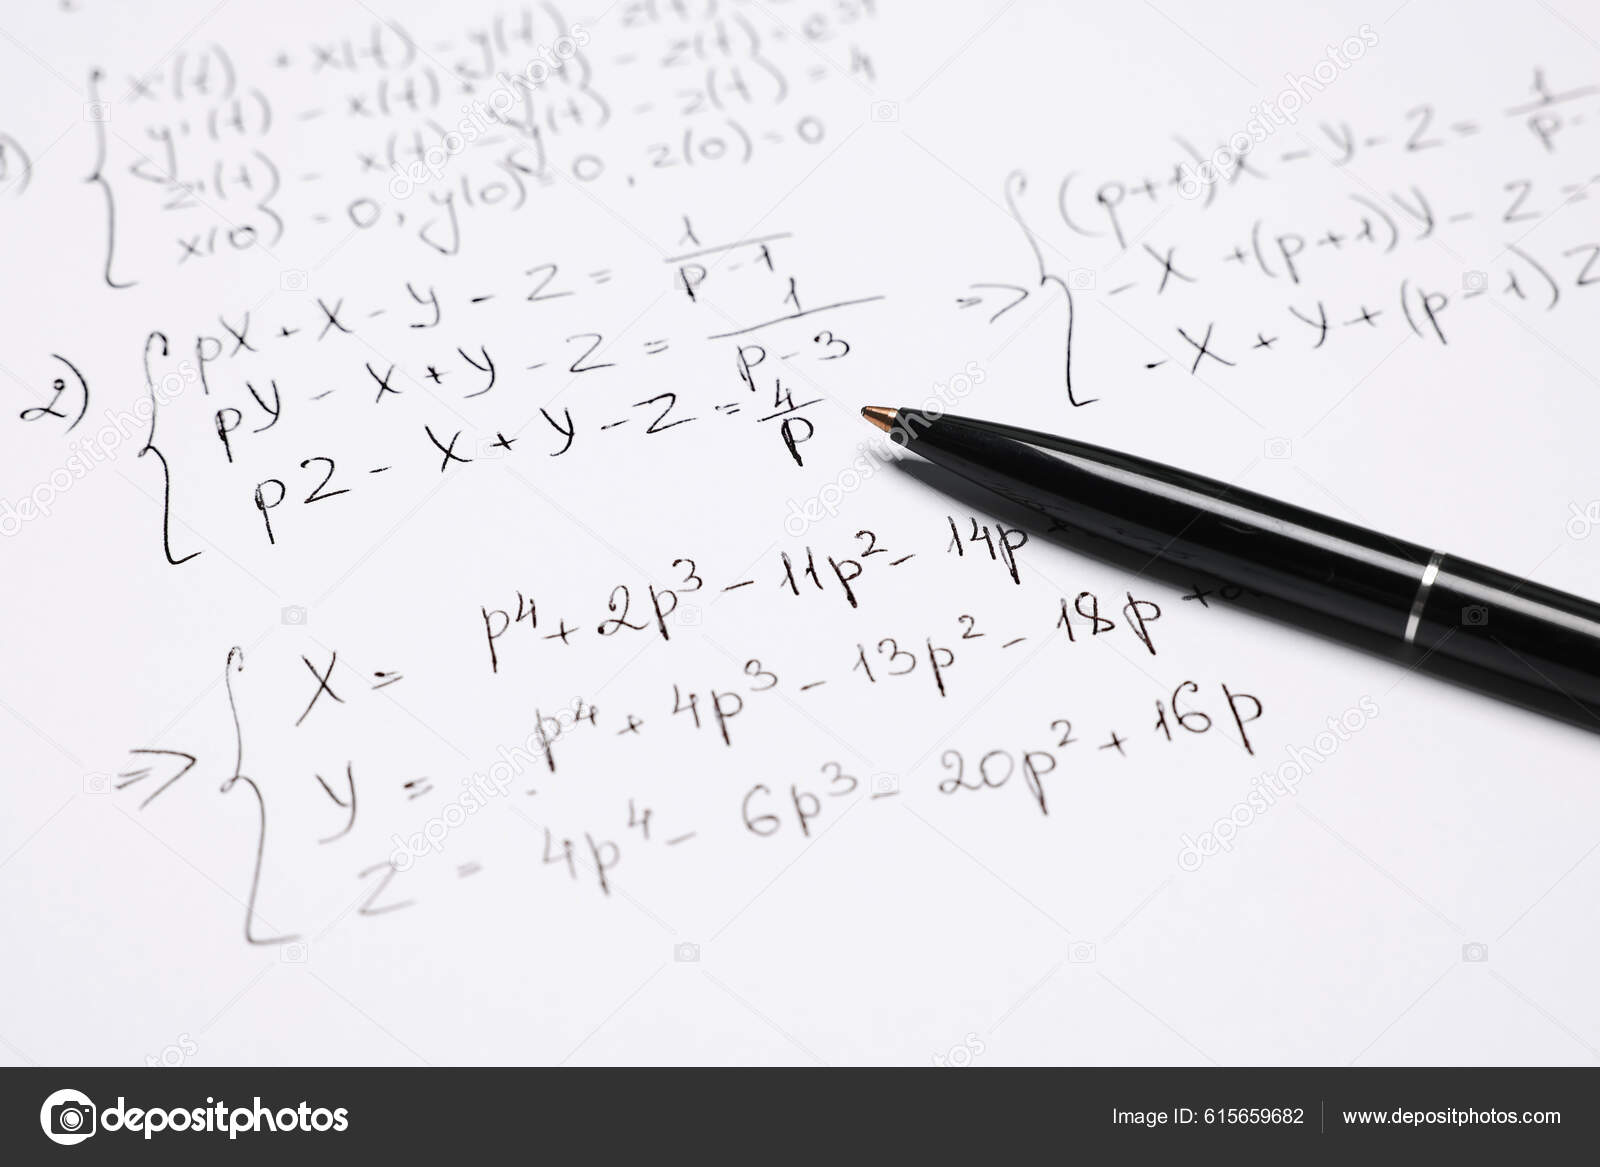 x'(t) + x(t) - y(t) - z(t)
y'(t) - x(t) + y(t) - z(t) = e3t
z'(t) - x(t) - y(t) - z(t) = 4
x(0) = 0, y(0) = 0, z(0) = 0
2) { pX + X - Y - Z = 1/(p - 1)
pY - X + Y - Z = 1/(p - 3)
pZ - X + Y - Z = 4/p
=> { (p+1)X - Y - Z = 1/p -
- X + (p+1)Y - Z =
- X + Y + (p-1)Z
=> { X = p⁴ + 2p³ - 11p² - 14p
Y = p⁴ + 4p³ - 13p² - 18p +
Z = 4p⁴ - 6p³ - 20p² + 16p
depositphotos
Image ID: 615659682 www.depositphotos.com